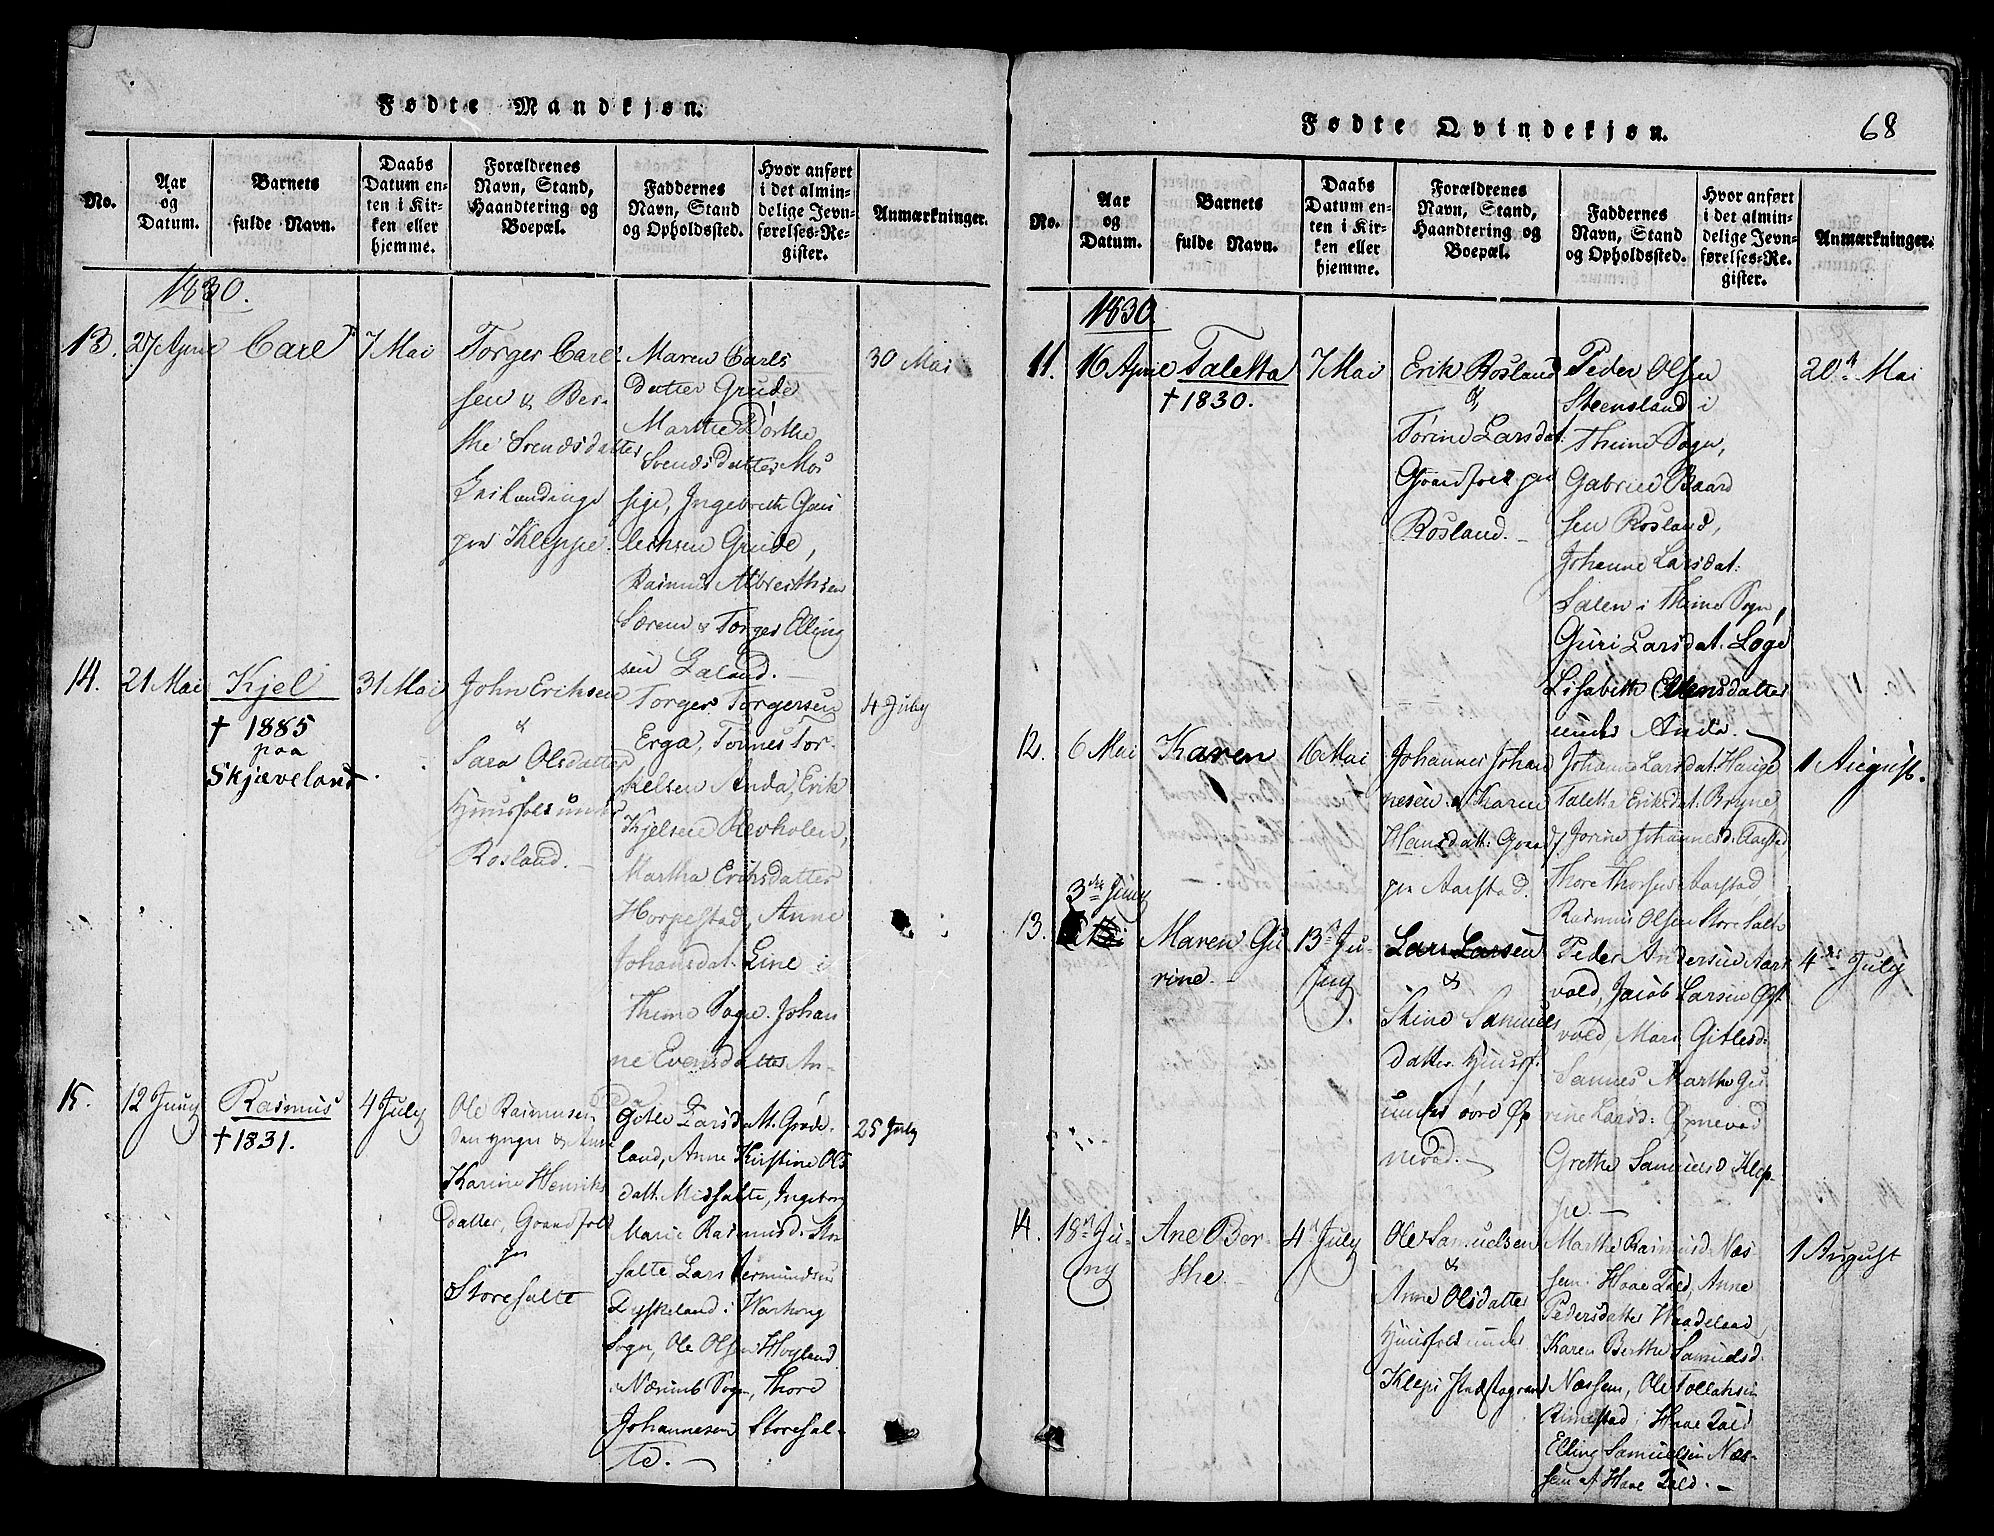 Fødte Mandkjøn.
No.
Aar
og
Datum.
Barnets
fulde Navn.
Daabs
Datum en-
ten i Kir-
ken eller
hjemme.
Forældrenes
Navn, Stand,
Haandtering og
Boepæl.
Faddernes
Navn, Stand
og Opholdssted.
Hvor anført
i det almin-
delige Jevn-
førelses-Re-
gister.
Anmærkninger.
1830.
13.
27 April
Carl
7 Mai
Torger Carl-
sen & Ber-
the Svendsdatter
paa Kleppe.
Maren Carls
datter Grude
Marthe Dorthe
Svendsdatter
Ingebreth
Grude,
Rasmus Albrecthsen
Særem & Torger Elling
sen Laland. —
30 Mai
14.
21 Mai
Kjel
† 1885
paa
Skjæveland
31 Mai
John Eriksen
&
Sara Olsdatter
Huusfolk under
Rosland. —
Torger Torgersen
Erga, Tønnes Tor-
kelsen Anda, Erik
Kjelsen Revholen,
Martha Eriksdatter
Horpestad, Anne
Johansdat. Line i
Thime Sogn. Johan
ne Evensdatter An-
da
4 July
15.
12 Juny
Rasmus
† 1831.
4 July
Ole Rasmusen
den yngre & Anne
Karine Henriks
Datter, Gaardfolk
paa
Storesalte
Gitle Larsdatt. Grøde-
land, Anne Kirstine Ols
datt. Midsalte, Ingeborg
Marie Rasmusd. Stor
salte Lars Germundsen
Dysjeland i Warhoug
Sogn, Ole Olsen Høyland
i Nærims Sogn, Thore
Johannesen Storesal-
te. —
25 July
Fødte Qvindekjøn.
68
No.
Aar
og
Datum.
Barnets
fulde Navn.
Daabs
Datum en-
ten i Kir-
ken eller
hjemme.
Forældrenes
Navn, Stand,
Haandtering og
Boepæl.
Faddernes
Navn, Stand
og Opholdssted.
Hvor anført
i det almin-
delige Jevn-
førelses-Re-
gister.
Anmærkninger.
1830
11.
16 April
Taletta
† 1830.
7 Mai
Erik Rosland
&
Torine Larsdat:
Gaardfolk paa
Rosland. —
Peder Olsen
Steensland i
Thime Sogn,
Gabriel Baard
sen Rosland,
Johanne Larsdat:
Salen i Thime Sogn,
Guri Larsdat. Loge
Lisabeth Evensdatter
under Anda. —
20de Mai
12.
6 Mai
Karen
16 Mai
Johannes Johan
nesen & Karen
Hansdatt: Gaardf
paa Aarstad.
Johanne Larsdat. Hauge
Taletta Eriksdat. Bryne
Jorine Johannesd. Aarstad,
Thore Thorsen Aarstad,
Rasmus Olsen Store Salte
1 August.
13.
3die Juny
Maren Gu
rine. —
13de Ju-
ny.
Lars Larsen
&
Stine Samuels
datter Huusf.
under øvre Øx
nevad. —
Peder Andersen Aars
vold, Jacob Larsen Øst
vold, Mari Gitlesd:
Sannes Marthe Gu
rine Larsd: Øxnevad
Grethe Samuelsd Klep-
pe. —
4de July
14.
18de Ju-
ny
Ane Ber-
the. —
4de July
Ole Samuelsen
&
Anne Olsdatter
Huusfolk under
Klep
Marthe Rasmusd. Næs-
sem. Haae Tald, Anne
Pedersdatter Haadeland,
Karen Berthe Samuelsd.
Næssem, Ole Tollaksen
Rimestad. Haae Tald
Elling Samuelsen Næs-
sem af Haae Tald. —
1 August